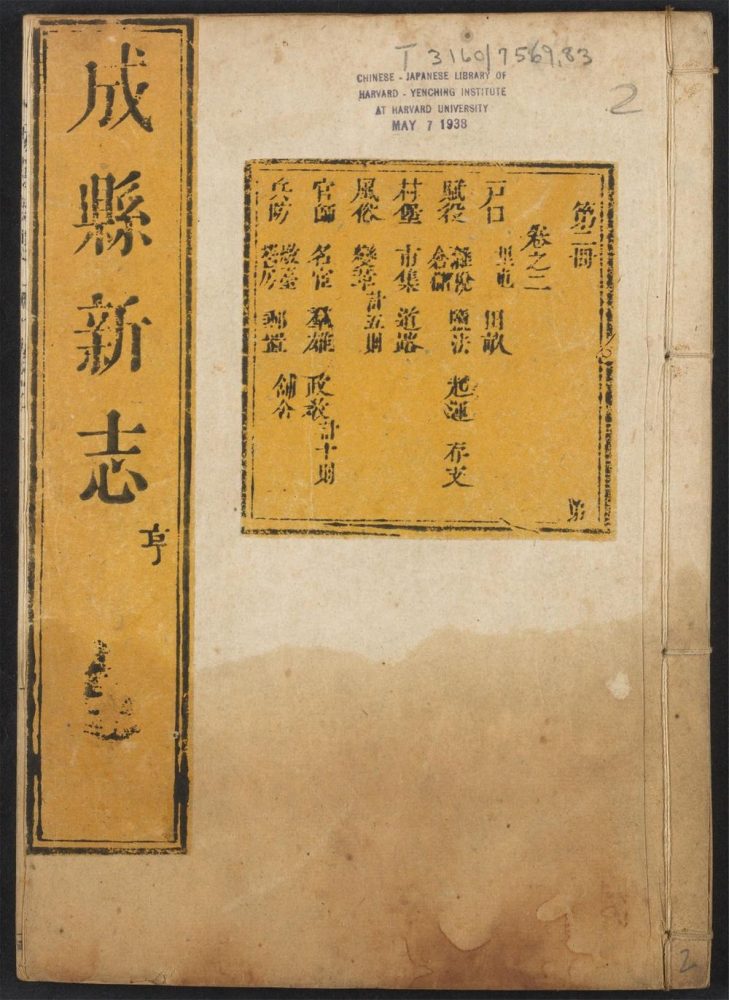 T 3160/7569.83
CHINESE - JAPANESE LIBRARY OF
HARVARD - YENCHING INSTITUTE
AT HARVARD UNIVERSITY
MAY 7 1938
2
成縣新志
亨
第二冊
卷之二
戶口 里屯 田畝
賦役 雜稅 倉儲 鹽法 起運 存支
村堡 市集 道路
風俗 變華 計五則
官師 名宦 氣雄 政教 計十則
兵防 墩臺 營房 郵置 舖舍
2